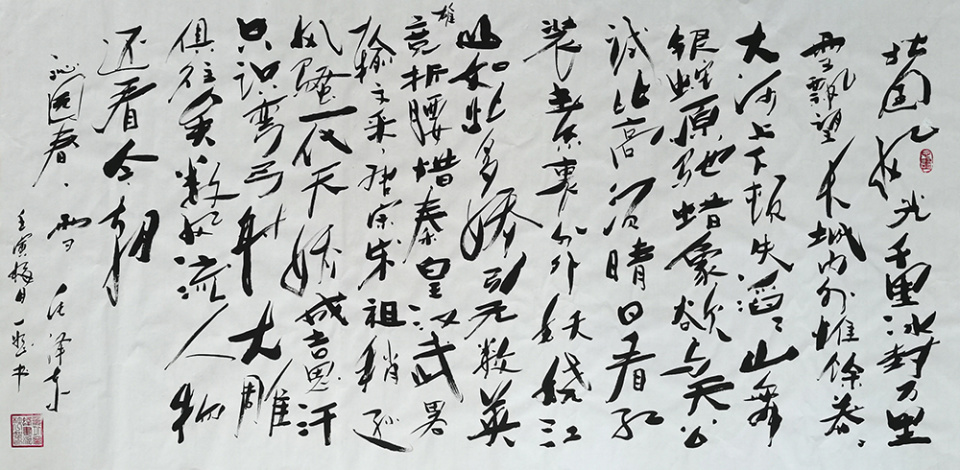 北国风光千里冰封万里
雪飘望长城内外惟馀莽々
大河上下顿失滔々山舞
银蛇原驰蜡象欲与天公
试比高须晴日看红
装素裹分外妖娆江
山如此多娇引无数英
雄
竞折腰惜秦皇汉武略
输文采唐宗宋祖稍逊
风骚一代天娇成吉思汗
只识弯弓射大雕
俱往矣数风流人物
还看今朝
沁园春·雪 毛泽东
壬寅梅月一 书